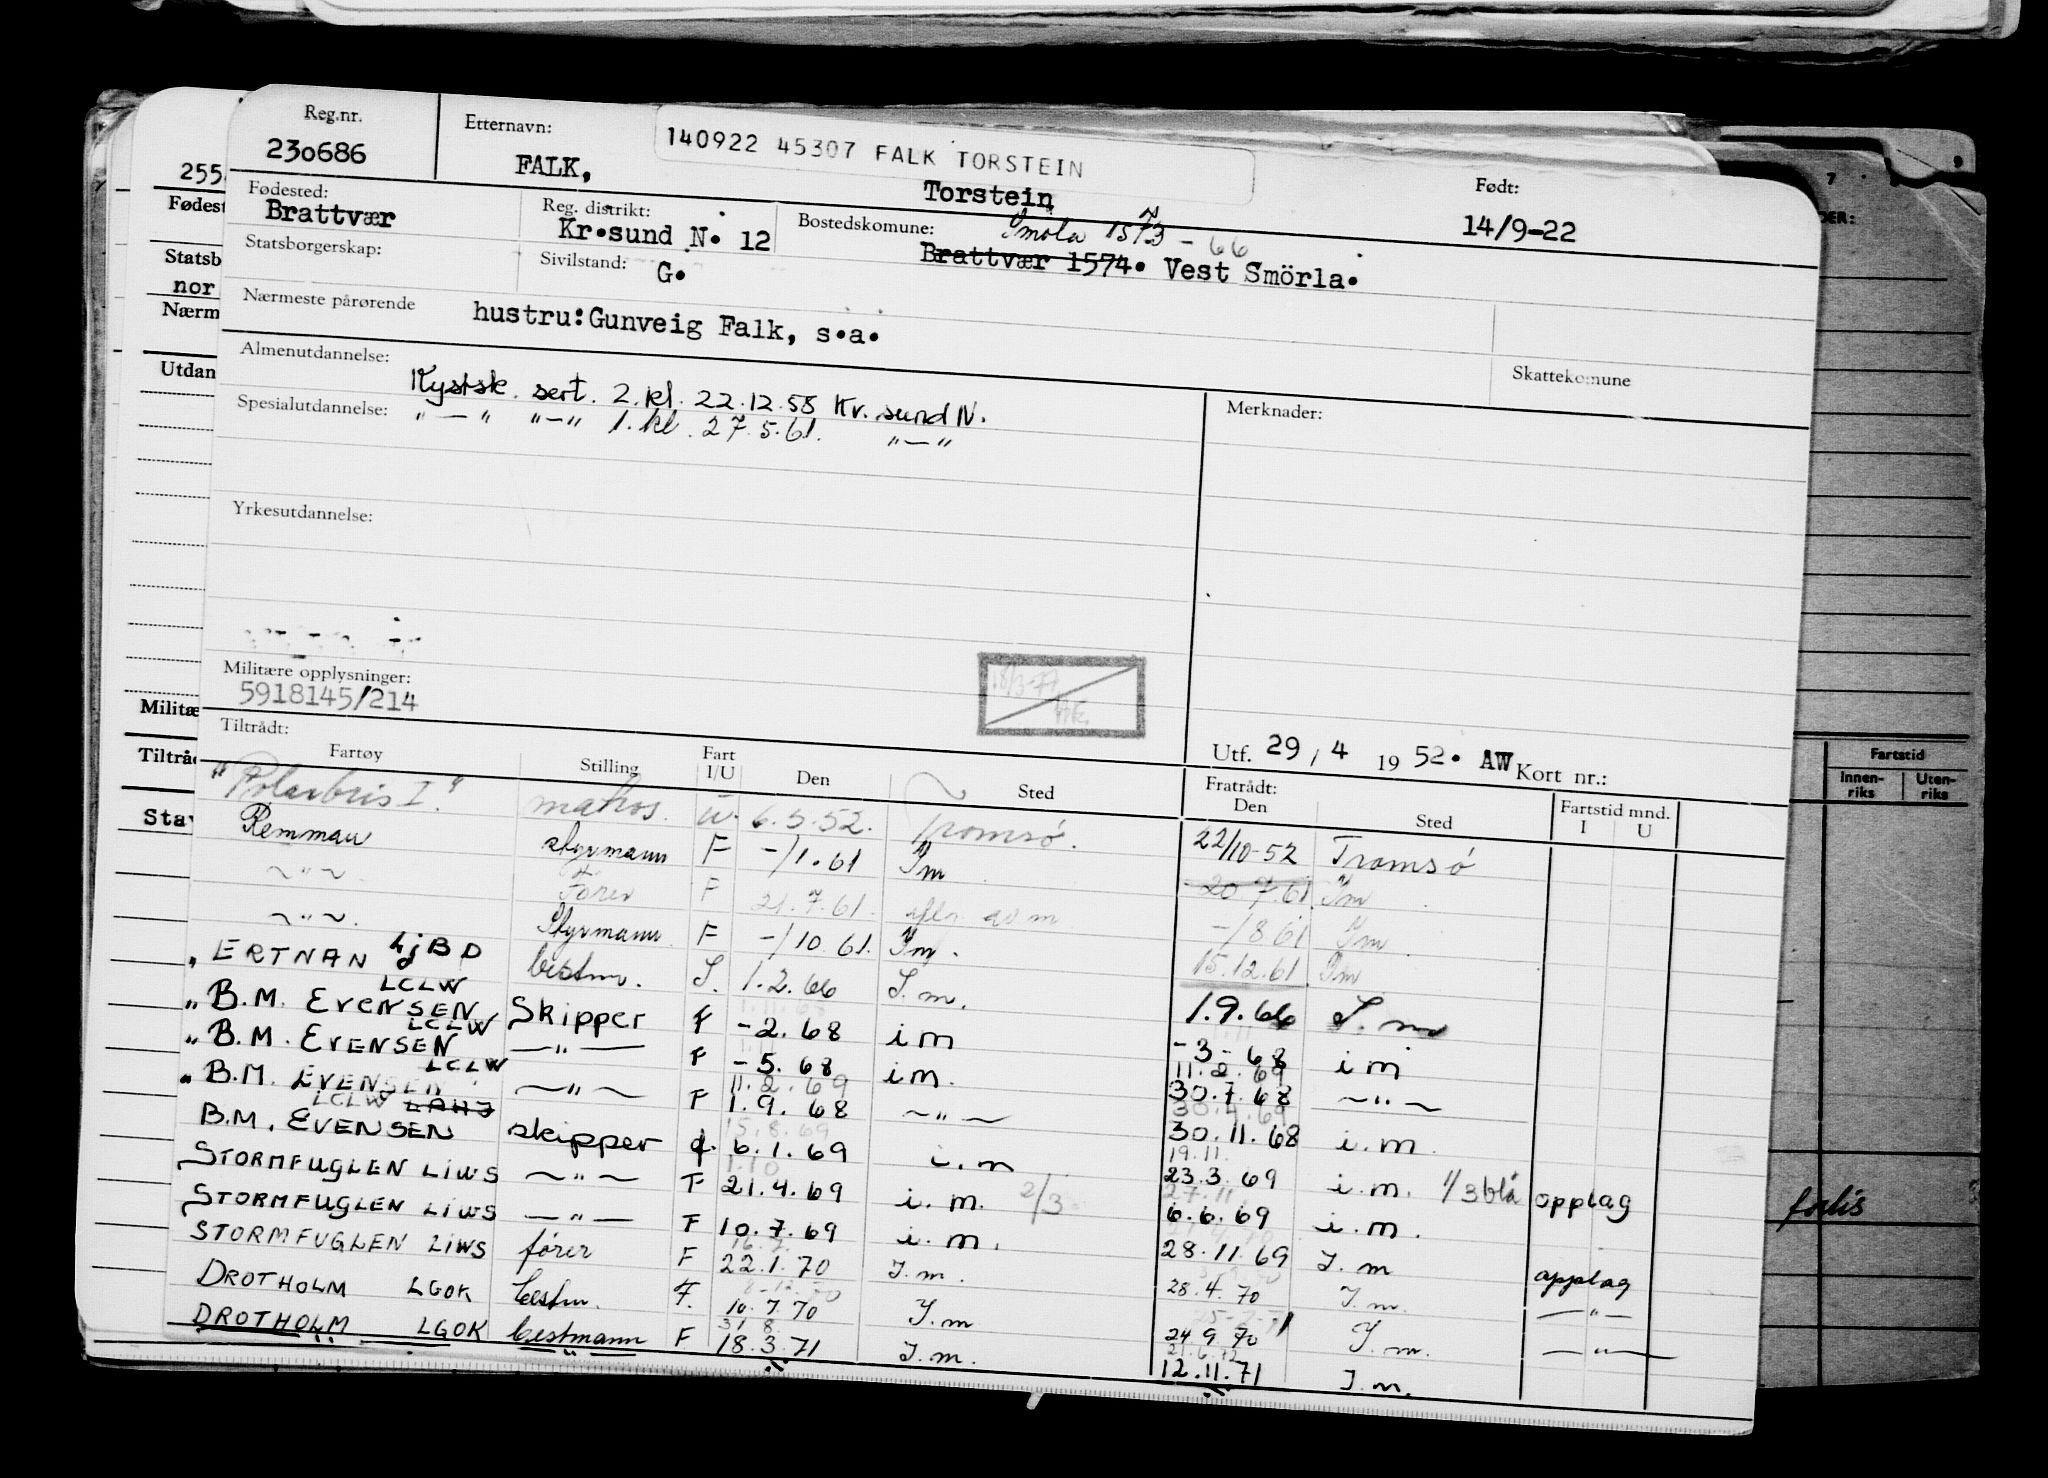 Reg.nr.
230686
Etternavn:
FALK,
140922 45307 FALK TORSTEIN
Torstein
Født:
14/9-22
Fødested:
Brattvær
Reg. distrikt:
Kr.sund N. 12
Bostedskomune:
Smøla 1573 - 66
Brattvær 1574. Vest Smörla.
Statsborgerskap:
Sivilstand:
G.
Nærmeste pårørende
hustru: Gunveig Falk, s.a.
Skattekomune
Almenutdannelse:
Kystsk. sert. 2. kl. 22.12.55 Kr. sund N.
Spesialutdannelse: " — " " — " 1. kl. 27.5.61. " — "
Merknader:
Yrkesutdannelse:
Militære opplysninger:
5918145/214
18/3-77
Utf. 29 / 4 1952. AW Kort nr.:
Tiltrådt:
Fartøy Stilling Fart I/U Den Sted Fratrådt: Den Sted Fartstid mnd. I U
"Polarbris I." matros. u. 6.5.52. Tromsø. 22/10-52 Tromsø
Remman styrmann F -/1.61 Im 20.7.61 Im
~ " ~ Fører F 21.7.61. -/8 61 Im
~ " ~ Styrmann F -/10.61. Im. 15.12.61 Im
" ERTNAN LJBD bestm. I. 1.2.66 I.m. 1.9.66 I.m
" B.M. EVENSEN LCLW Skipper F -2.68 im -3-68 im
" B.M. EVENSEN LCLW — " — F -5.68 im. 30.7.68 ~ " ~
" B.M. EVENSEN LCLW ~ " ~ F 1.9.68 ~ " ~ 30.11.68 i.m
B.M. EVENSEN LCLW LAHJ skipper F. 6.1.69 i.m 23.3.69 i.m. 1/3 blå opplag
STORMFUGLEN LIWS ~ " ~ F 21.4.69 i.m. 2/3 6.6.69 i.m.
STORMFUGLEN LIWS — " — F 10.7.69 i.m. 28.11.69 I.m opplag
STORMFUGLEN LIWS fører F 22.1.70 I.m. 28.4.70 I.m. — " —
DROTHOLM LGOK bestm. F. 10.7.70 I.m 24.9.70 I.m. — " —
DROTHOLM LGOK bestmann F 18.3.71 I.m. 12.11.71 I.m.
255
Fødest
Statsb
nor
Nærm
Utdan
Militæ
Tiltråd
Sta
7
9
DER:
Fartstid
Innen-riks
Uten-riks
forlis